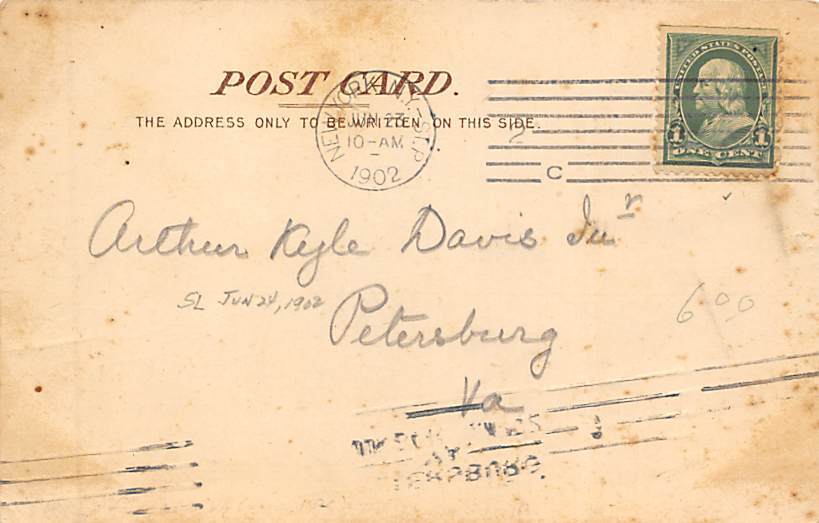 POST CARD.
THE ADDRESS ONLY TO BE WRITTEN ON THIS SIDE.
NEW YORK, N.Y. STA. P
JUN 23
10-AM
1902
C
UNITED STATES POSTAGE
1 1
ONE CENT
Arthur Kyle Davis Jur
SL JUN 24, 1902
Petersburg
Va
600